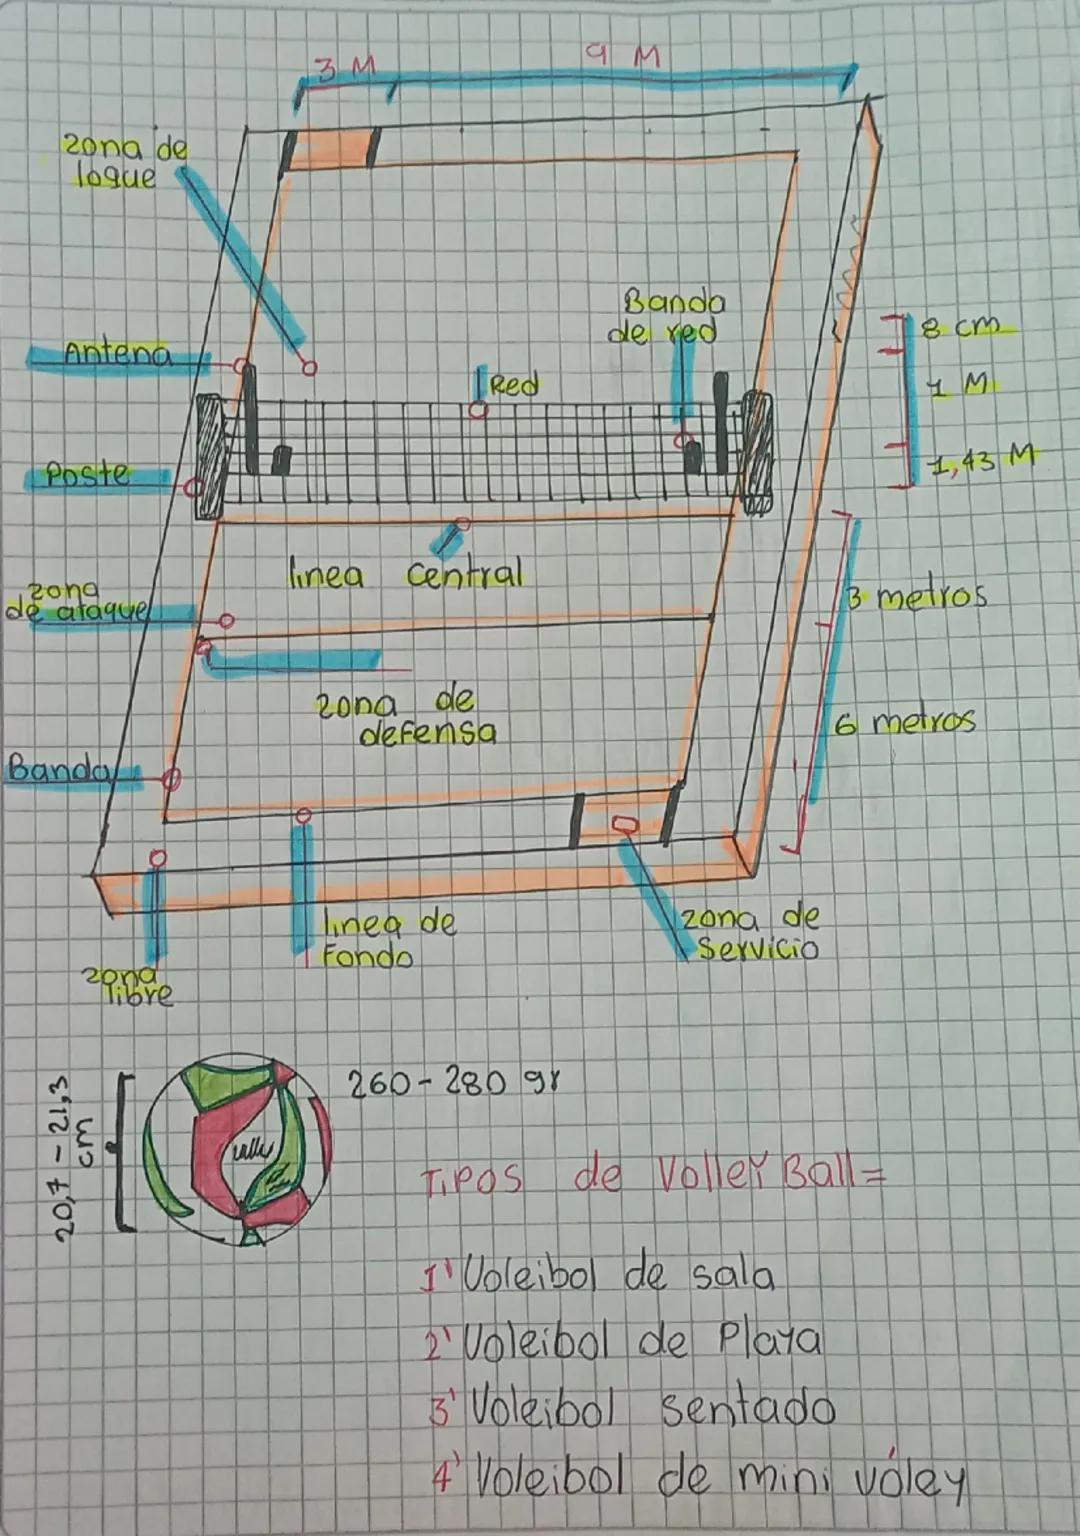 3 M
9 M
zona de
loque
Banda
de red
8 cm
Antena
Red
1 M
Poste
1,43 M
linea central
zona
de ataque
3 metros
zona de
defensa
6 metros
Banda
linea de
Fondo
zona de
Servicio
zona
libre
20,7 - 21,3
cm
260 - 280 gr
TiPOS de VolleY Ball =
1' Voleibol de sala
2' Voleibol de Playa
3' Voleibol sentado
4' Voleibol de mini vóley